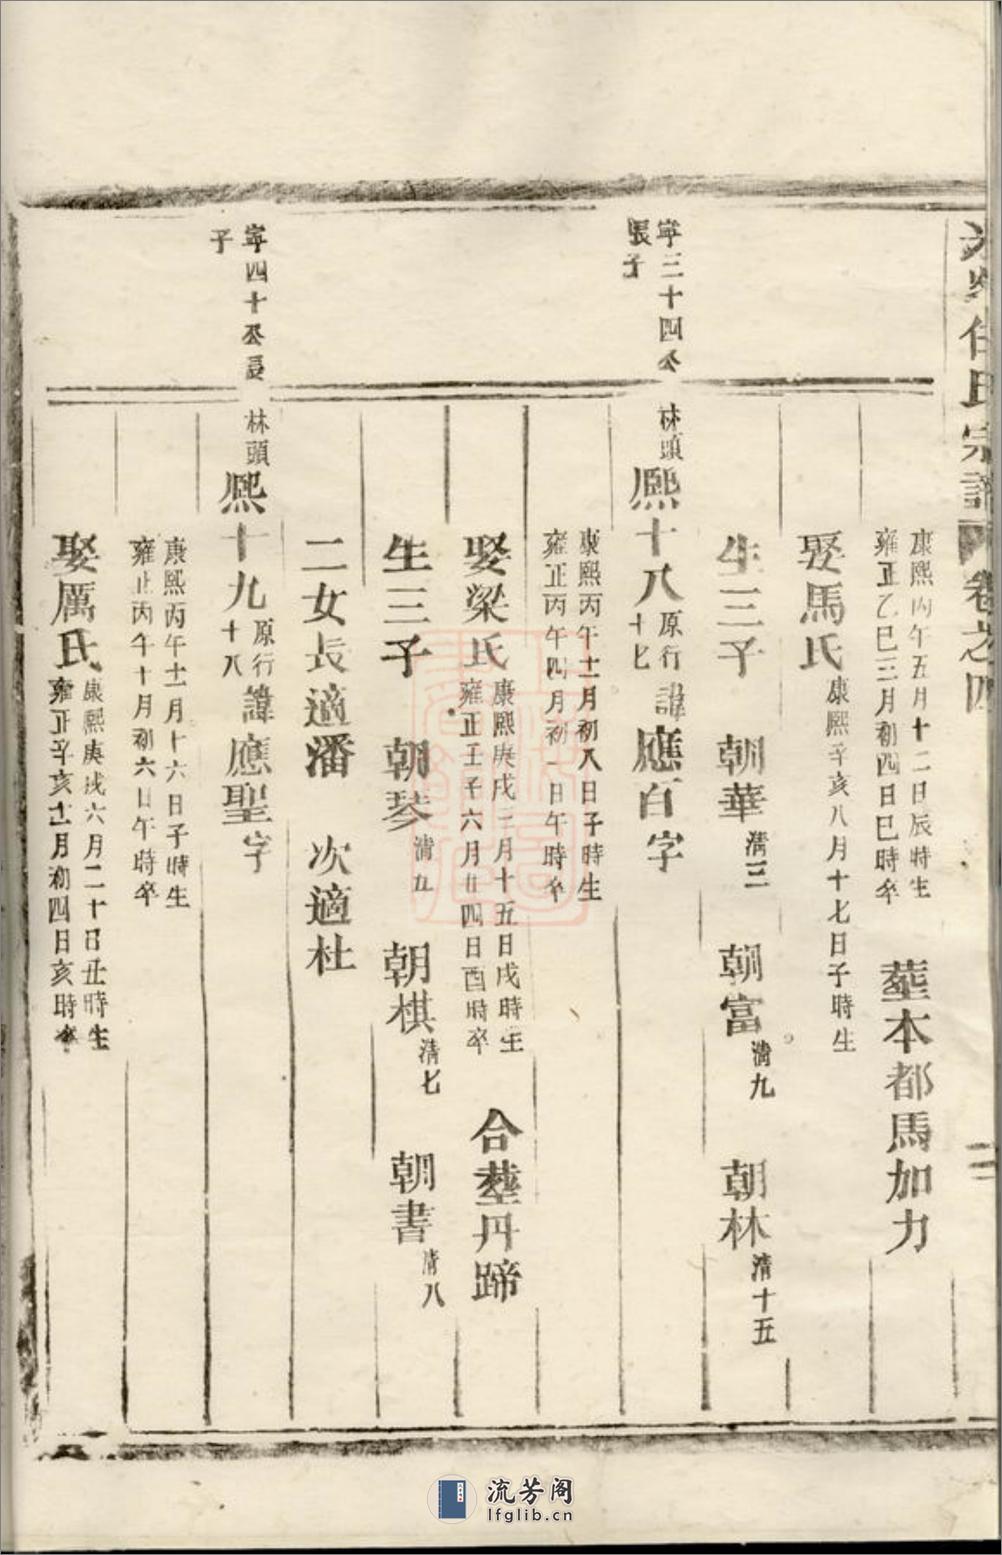 任氏宗譜 卷之四
二
康熙丙午五月十二日辰時生
雍正乙巳三月初四日巳時卒
塟本都馬加力
娶馬氏 康熙辛亥八月十七日子時生
生三子 朝華 清三 朝富 清九 朝林 清十五
寧三十四公
長子
林頭 熈十八 原行十七 諱應百字
康熙丙午十一月初八日子時生
雍正丙午四月初一日午時卒
娶梁氏 康熙庚戌三月十五日戌時生
雍正壬子六月廿四日酉時卒
合塟丹蹄
生三子 朝琴 清五 朝棋 清七 朝書 清八
二女長適潘 次適杜
寧四十公長
子
林頭 熈十九 原行十八 諱應聖字
康熙丙午十一月十六日子時生
雍正丙午十月初六日午時卒
娶厲氏 康熙庚戌六月二十日丑時生
雍正辛亥十一月初四日亥時卒
流芳阁
lfglib.cn